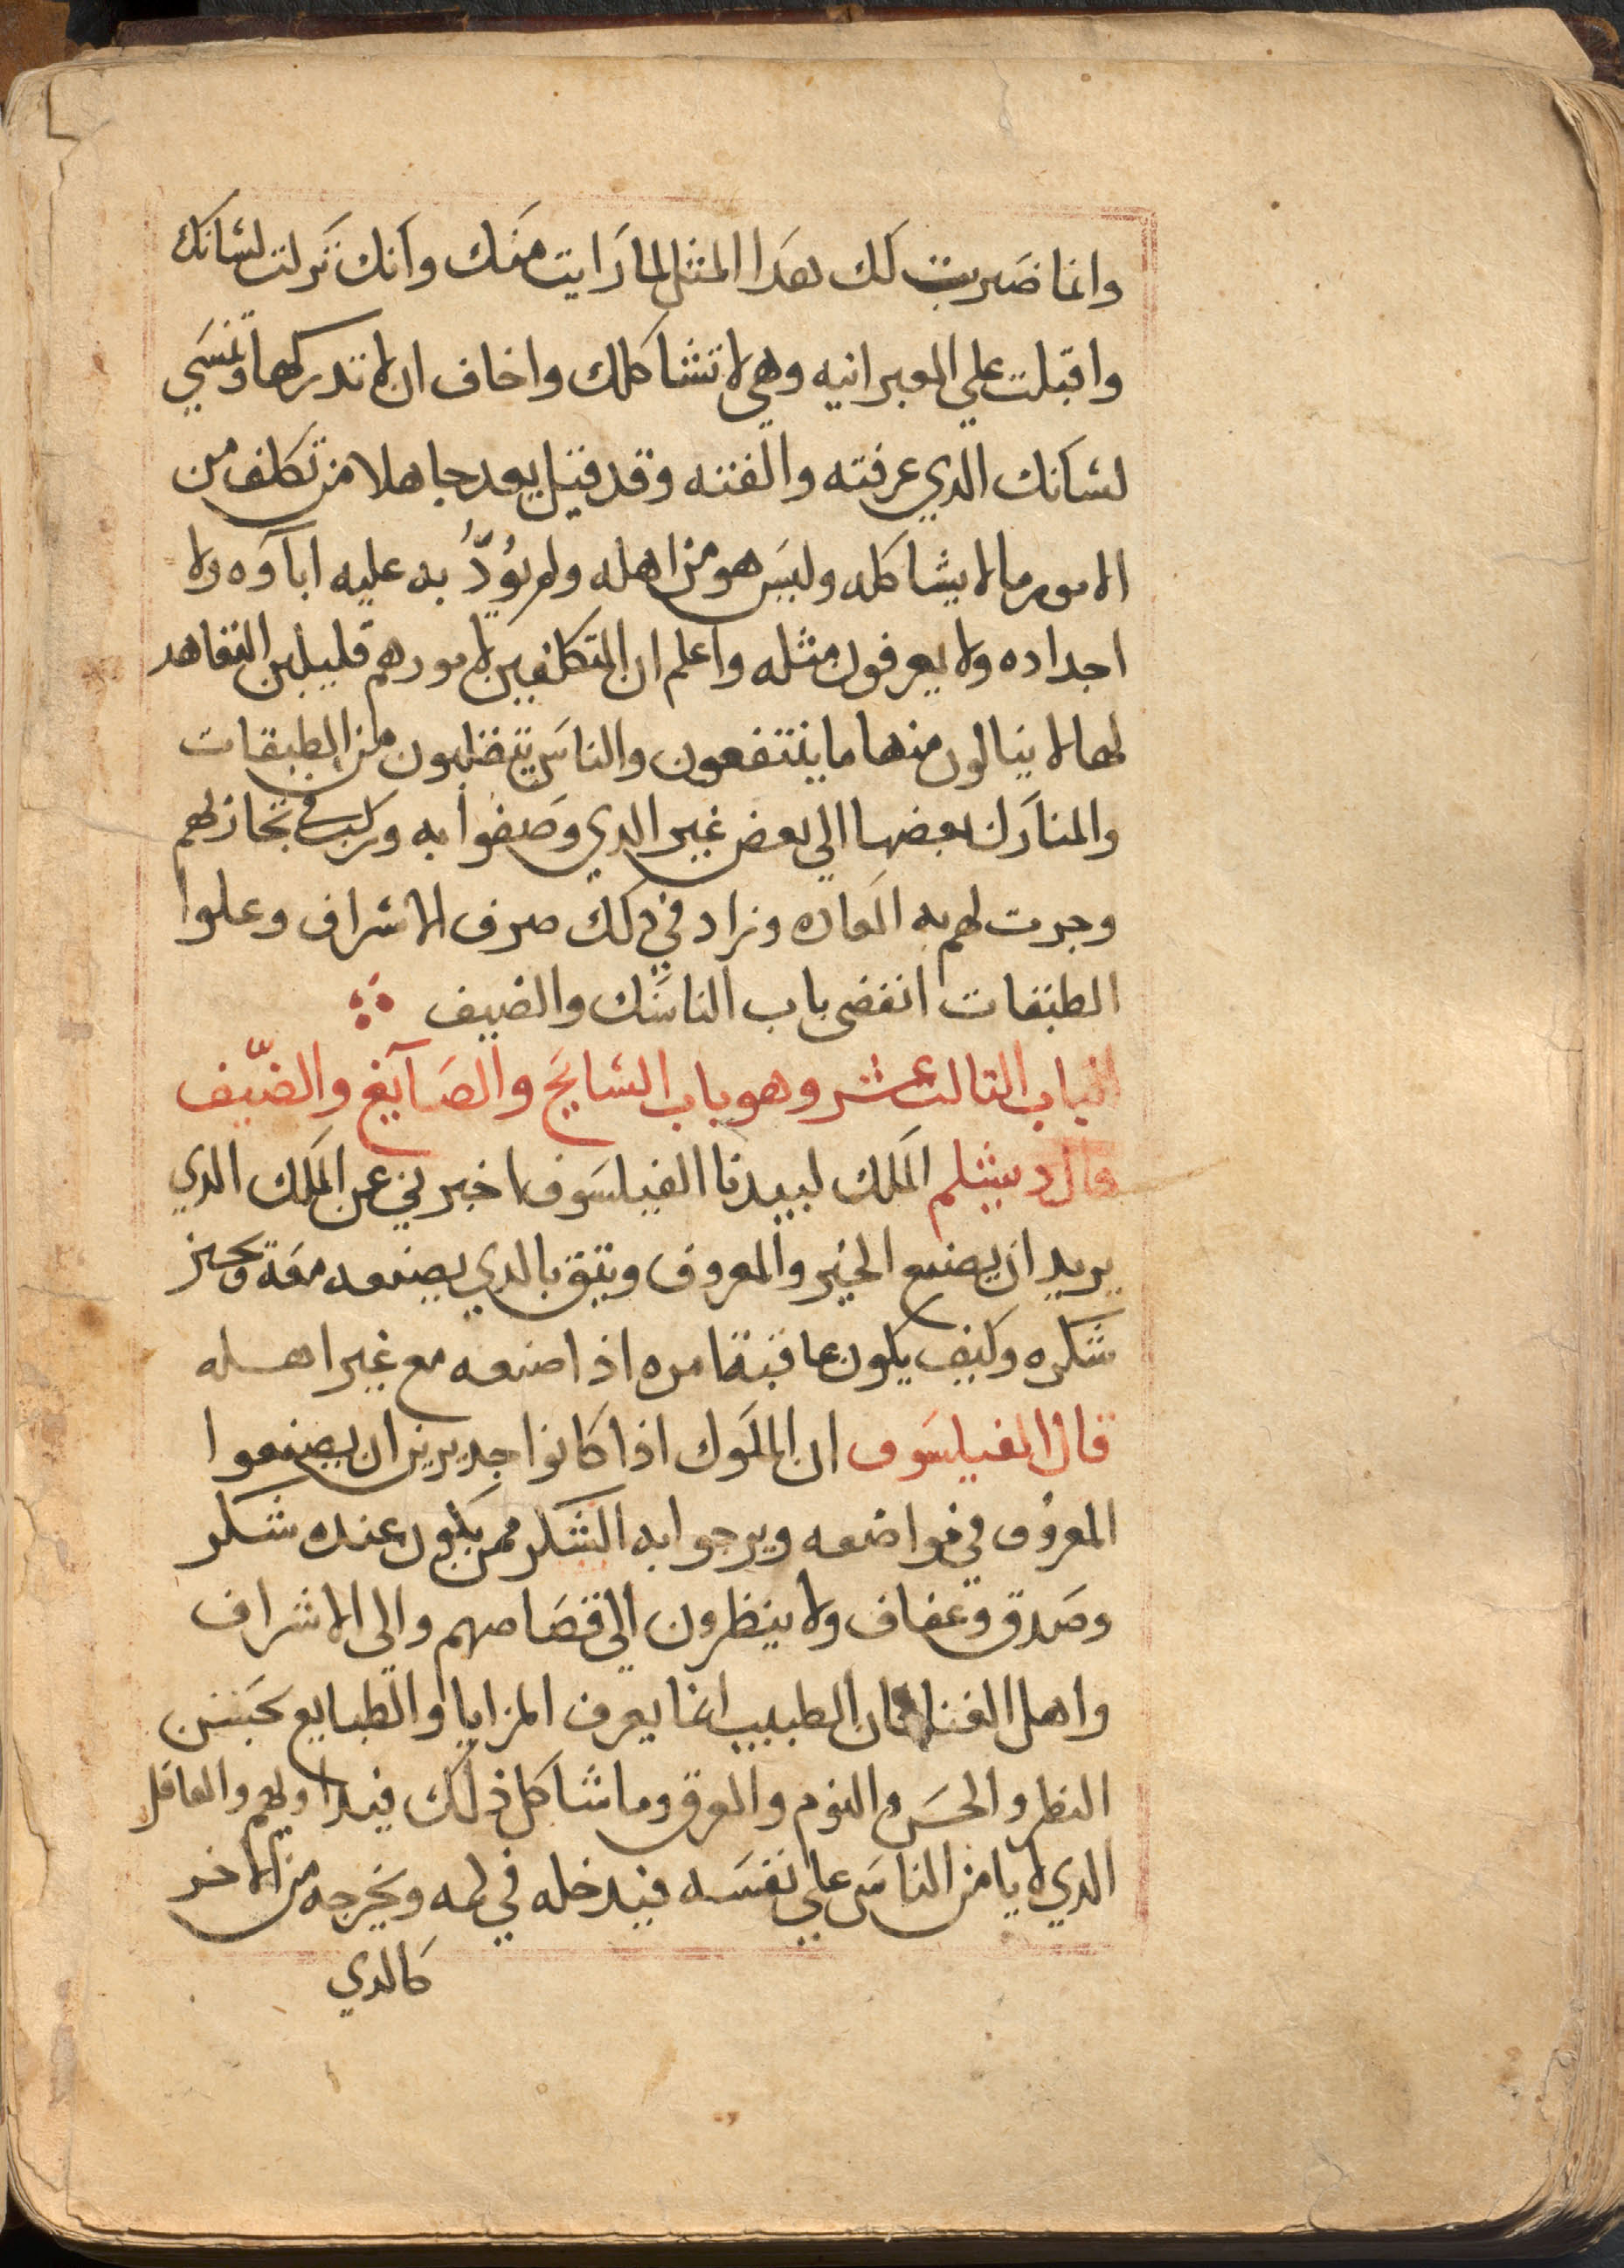 وانما ضربت لك هدا المثل لما رايت منك وانك تركت لسانك
واقبلت علي العبرانيه وهي لا تشاكلك واخاف ان لا تدركها وتنسي
لسانك الدي عرفته والفته وقد قيل يعد جاهلا من تكلف من
الامور مالا يشاكله وليس هو من اهله ولم يؤدّبه عليه اباوه ولا
اجداده ولا يعرفون مثله واعلم ان المتكلفين لامورهم قليلين التعاهد
لها لا ينالون منها ما ينتفعون والناس ينتقلبون من الطبقات
والمنازل بعضها الي بعض غير الدي وصفوا به وركب في
وجرت لهم به العاده وزاد في دلك صرف الاشراف وعلوا
الطبقات انقضى باب الناسك والضيف
الباب التالت عشر وهو باب السايح والصآيغ والضيف
قال دبشلم الملك لبيدبا الفيلسوف اخبرني عن الملك الدي
يريد ان يصنع الخير والمعروف ويتق بالدي يصنعه معه
شكره وكيف يكون عاقبة امره اذا صنعه مع غير اهله
قال الفيلسوف ان الملوك اذا كانوا جديرين ان يصنعوا
المعروف في مواضعه ويرجوا به الشكر ممن يكون عنده شكر
وصدق وعفاف ولا ينظرون الي قصاصهم والى الاشراف
واهل الغنا فان الطبيب انما يعرف المزايا والطبايع بحسن
النظر والحس والنوم والعرق وما شاكل ذلك فيداويهم والعاقل
الدي لا يامن الناس علي نفسه فيدخله في كمه ويخرجه من الاخر
كالدي